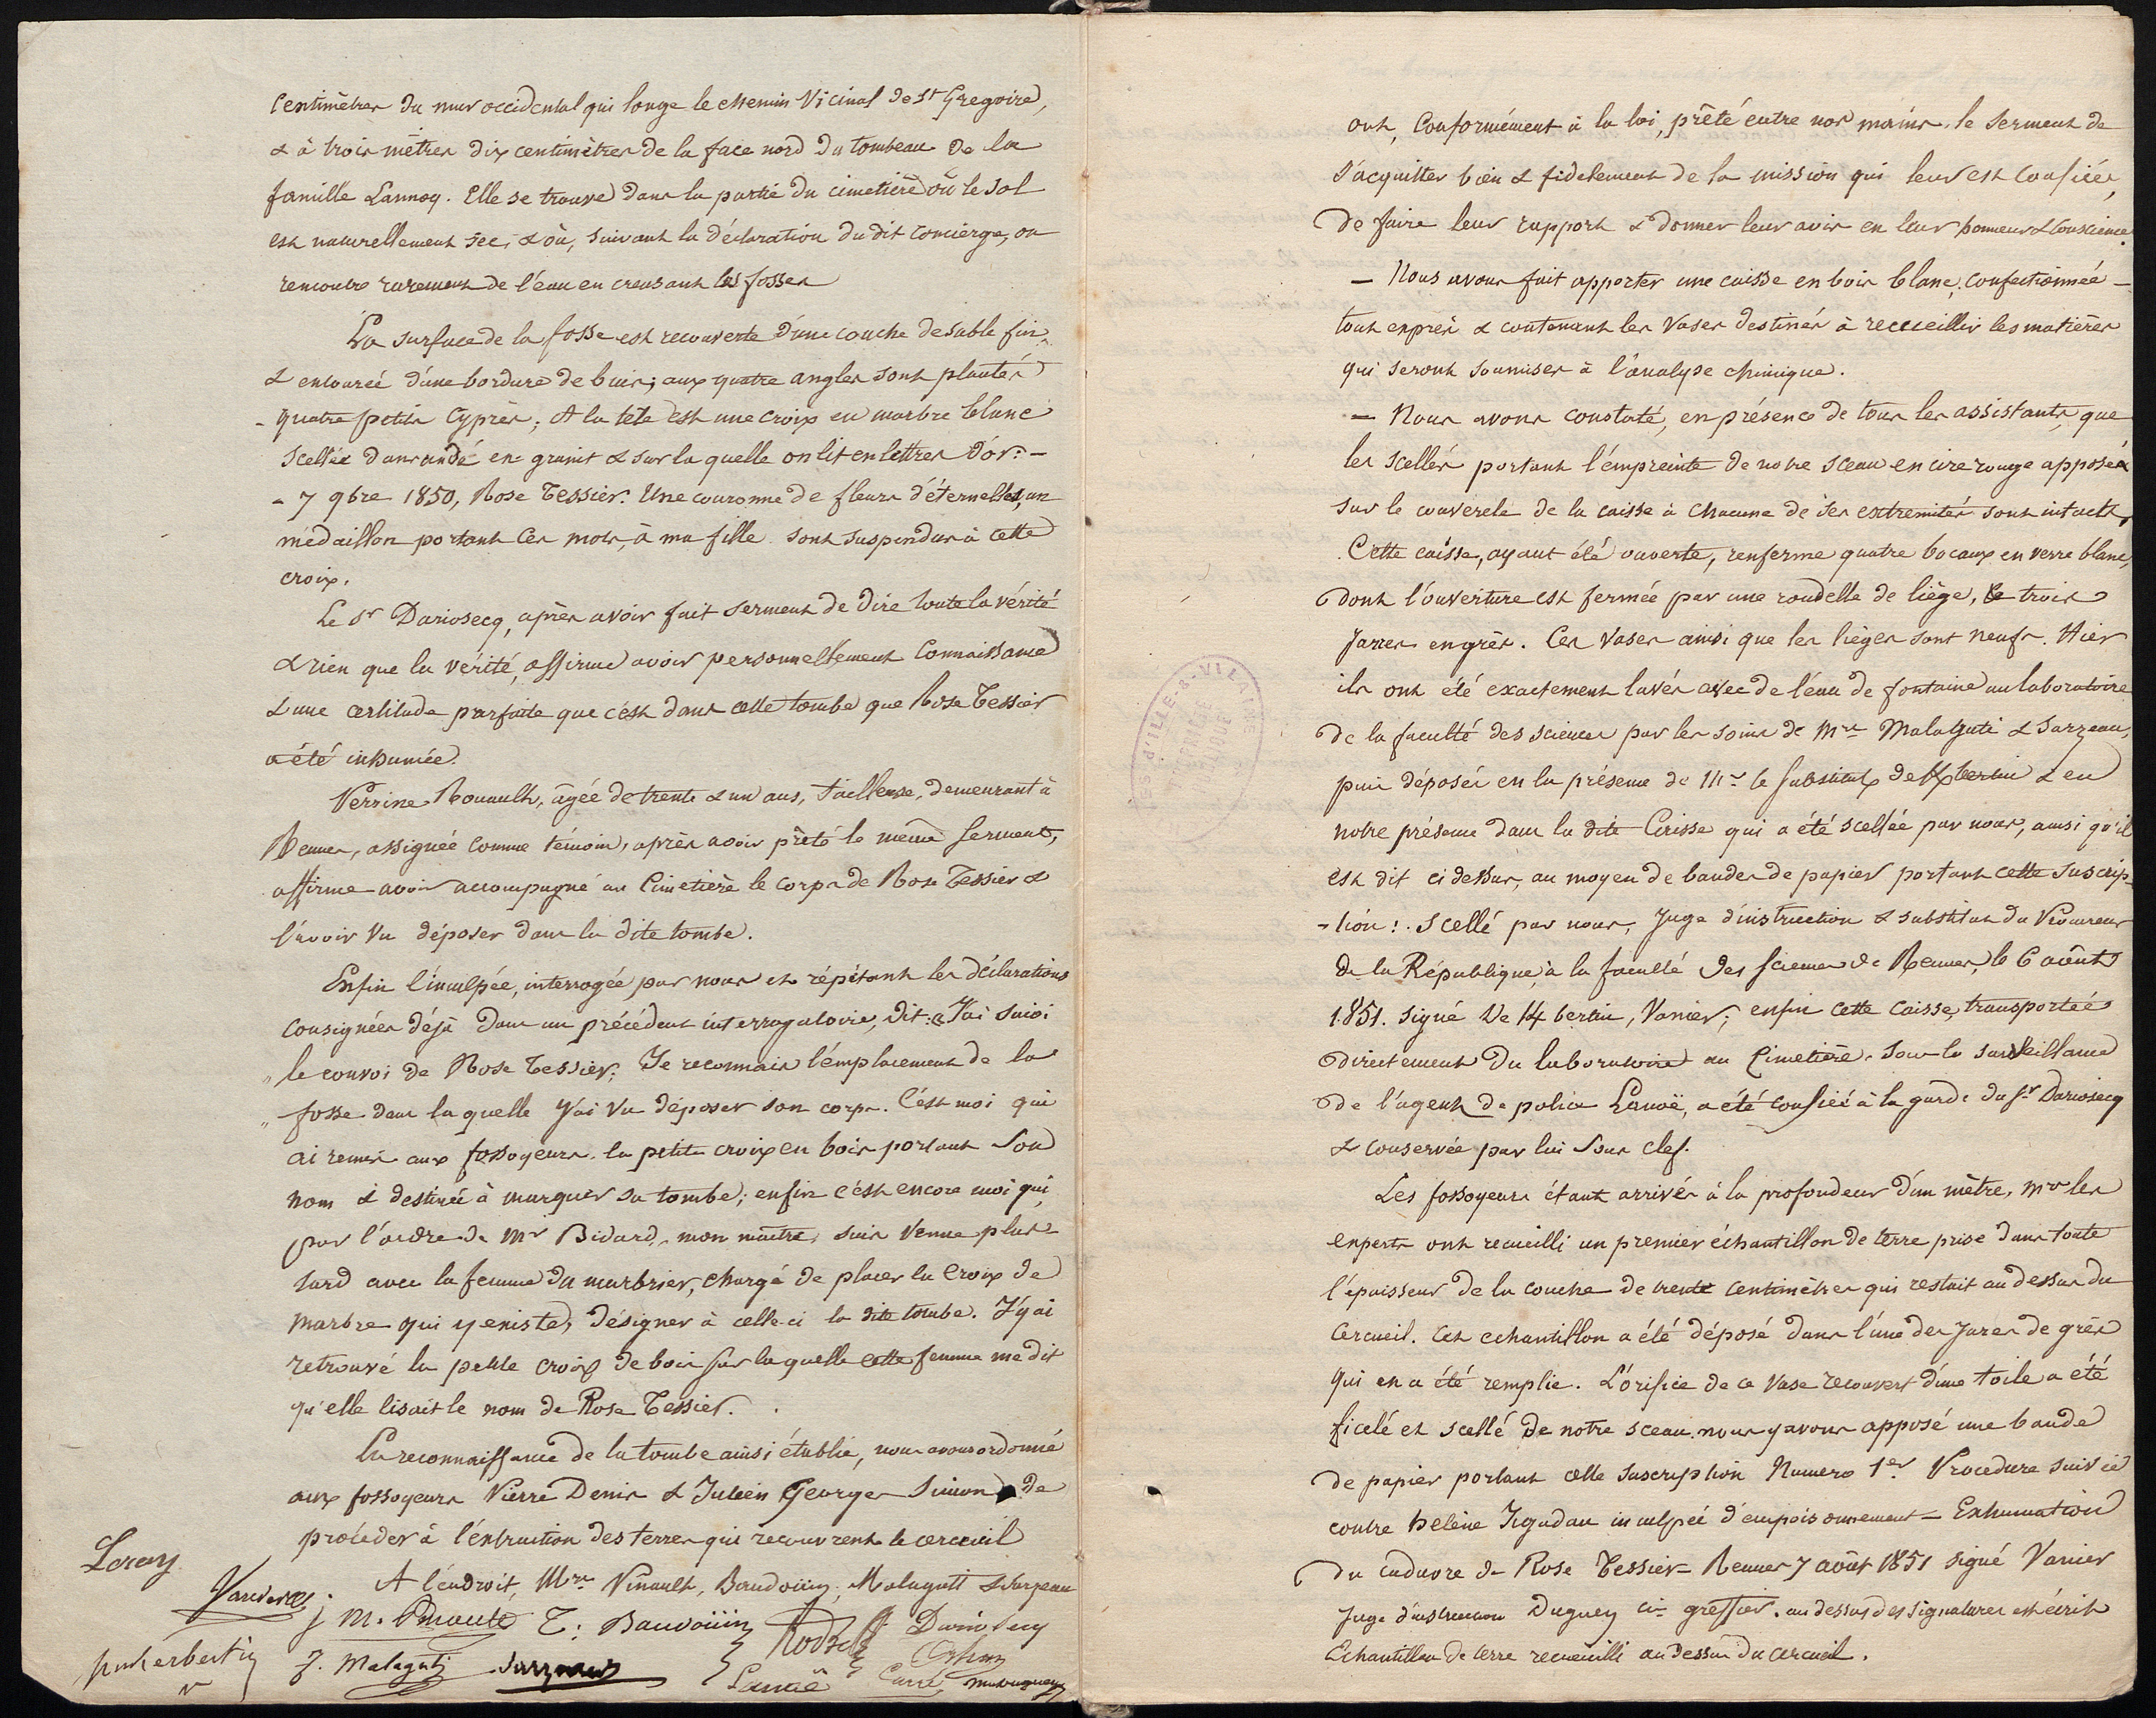 Centimètres du mur occidental qui longe le chemin Vicinal de St Gregoire,
& à trois mètres dix centimètres de la face nord du tombeau de la
famille Lannoy. Elle se trouve dans la partie du cimetière où le sol
est naturellement sec, & où, suivant la déclaration du dit concierge, on
rencontre rarement de l'eau en creusant les fosses
La surface de la fosse est recouverte d'une couche de sable fin
& entourée d'une bordure de buis; aux quatre angles sont plantés
- quatre petits Cyprès; A la tête est une croix en marbre blanc
scellée dans un dé en granit & sur la quelle on lit en lettres d'or: -
- 7 9bre 1850, Rose Tessier. Une couronne de fleurs d'éternelles, un
médaillon portant ces mots, à ma fille sont suspendus à cette
croix.
Le Sr Dariosecq, après avoir fait serment de dire toute la vérité
& rien que la vérité, affirme avoir personnellement Connaissance
& une certitude parfaite que c'est dans cette tombe que Rose Tessier
a été inhumée.
Perrine Rouault, âgée de trente & un ans, tailleuse, demeurant à
Rennes, assignée comme témoin, après avoir prêté le même serment,
affirme avoir accompagné au Cimetière le corps de Rose Tessier &
l'avoir vu déposer dans la dite tombe.
Enfin l'inculpée, interrogée par nous et répétant les déclarations
consignées déjà dans un précédent interrogatoire, dit: « J'ai suivi
" le convoi de Rose Tessier; Je reconnais l'emplacement de la
" fosse dans la quelle j'ai vu déposer son corps. C'est moi qui
ai remis aux fossoyeurs la petite croix en bois portant son
nom & destinée à marquer sa tombe; enfin c'est encore moi qui,
par l'ordre de Mr Bidard, mon maître, suis venue plus
tard avec la femme du marbrier, chargé de placer la Croix de
marbre qui y existe, désigner à celle-ci la dite tombe. J'y ai
retrouvé la petite croix de bois sur laquelle cette femme me dit
qu'elle lisait le nom de Rose Tessier.
La reconnaissance de la tombe ainsi établie, nous avons ordonné
aux fossoyeurs Pierre Denis & Julien Georges Simon de
procéder à l'extraction des terres qui recouvrent le cercueil
A l'endroit, Mrs Pinault, Baudouin, Malaguti & Sarzeau
Loray
Vannier
M. Pinault T. Baudouin
Dariosecq
F. Malaguti Sarzeau
Lanoë Carré
ont, Conformément à la loi, prêté entre nos mains, le serment de
s'acquitter bien & fidelement de la mission qui leur est confiée,
de faire leur rapport & donner leur avis en leur honneur & conscience.
- Nous avons fait apporter une caisse en bois blanc, confectionnée -
tout exprès & contenant les vases destinés à recueillir les matières
qui seront soumises à l'analyse chimique.
- Nous avons constaté, en présence de tous les assistants, que
les scellés portant l'empreinte de notre sceau en cire rouge apposés
sur le couvercle de la caisse à chacune de ses extremités sont intacts.
Cette caisse, ayant été ouverte, renferme quatre bocaux en verre blanc,
dont l'ouverture est fermée par une rondelle de liège, & trois
jarres en grès. Ces vases ainsi que les lièges sont neufs. Hier
ils ont été exactement lavés avec de l'eau de fontaine au laboratoire
de la faculté des sciences par les soins de Mrs Malaguti & Sarzeau,
puis déposés en la présence de Mr le Substitut de Hbertin & en
notre présence dans la dite Caisse qui a été scellée par nous, ainsi qu'il
est dit ci dessus, au moyen de bandes de papier portant cette suscrip-
- tion: Scellé par nous, Juge d'instruction & substitut du Procureur
de la République, à la faculté des sciences de Rennes, le 6 août
1851. Signé De Hbertin, Vanier; enfin cette caisse, transportée
directement du laboratoire au Cimetière sous la surveillance
de l'agent de police Lanoë, a été confiée à la garde du Sr Dariosecq
& conservée par lui sous clef.
Les fossoyeurs étant arrivés à la profondeur d'un mètre, Mrs les
experts ont recueilli un premier échantillon de terre prise dans toute
l'épaisseur de la couche de trente centimètres qui restait au dessus du
Cercueil. Cet echantillon a été déposé dans l'une des Jarres de grès
qui en a été remplie. L'orifice de ce vase recouvert d'une toile a été
ficelé et scellé de notre sceau. nous y avons apposé une bande
de papier portant cette suscription Numero 1er Procedure suivie
contre hélène Jegadau inculpée d'empoisonnement - Exhumation
du cadavre de Rose Tessier - Rennes 7 août 1851 signé Vanier
Juge d'instruction Duguey cis greffier. au dessus des signatures est écrit
Echantillon de terre recueilli au dessus du cercueil.
D'ILLE-&-VILAINE